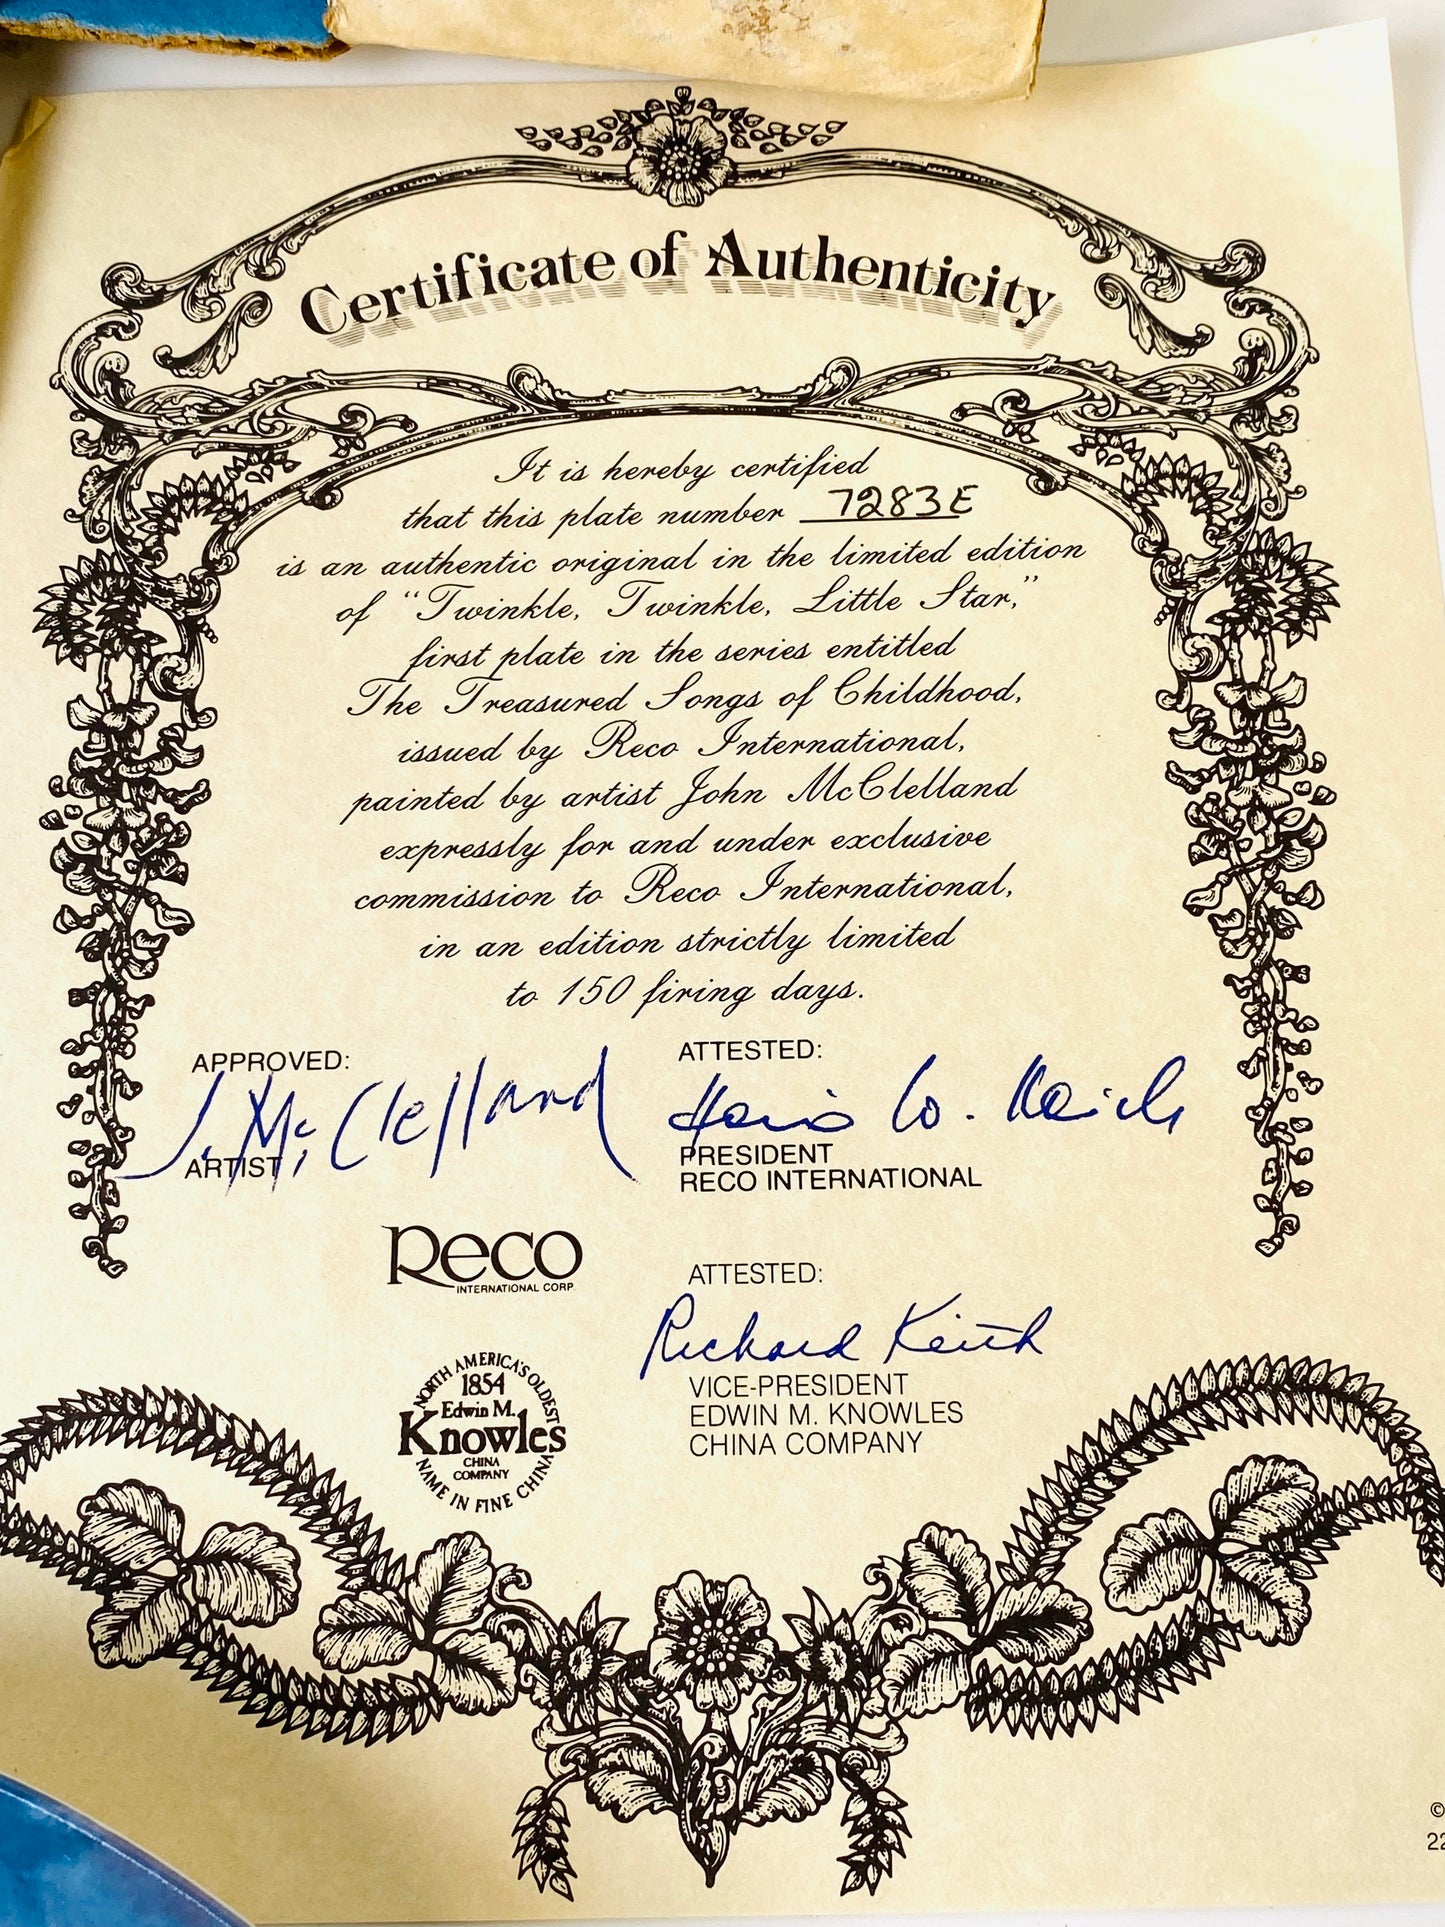 Certificate of Authenticity
It is hereby certified
that this plate number 7283E
is an authentic original in the limited edition
of "Twinkle, Twinkle, Little Star,"
first plate in the series entitled
The Treasured Songs of Childhood,
issued by Reco International,
painted by artist John McClelland
expressly for and under exclusive
commission to Reco International,
in an edition strictly limited
to 150 firing days.
APPROVED:
J. McClelland
ARTIST
ATTESTED:
W.
PRESIDENT
RECO INTERNATIONAL
Reco
INTERNATIONAL CORP.
ATTESTED:
Richard Keith
VICE-PRESIDENT
EDWIN M. KNOWLES
CHINA COMPANY
NORTH AMERICA'S OLDEST
1854
Edwin M.
Knowles
CHINA
COMPANY
NAME IN FINE CHINA
©
22